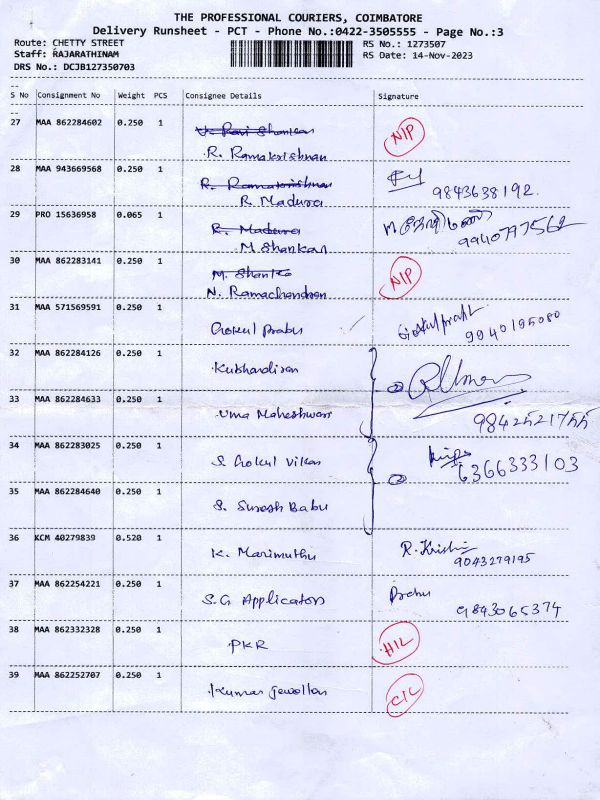 THE PROFESSIONAL COURIERS, COIMBATORE
Delivery Runsheet - PCT - Phone No.:0422-3505555 - Page No.:3
Route: CHETTY STREET RS No.: 1273507
Staff: RAJARATHINAM RS Date: 14-Nov-2023
DRS No.: DCJB127350703
S No Consignment No Weight PCS Consignee Details Signature
27 MAA 862284602 0.250 1 V. Ravi Shankar NIP
R. Ramakrishnan
28 MAA 943669568 0.250 1 R. Ramakrishnan
R. Madura 9843638192.
29 PRO 15636958 0.065 1 R. Madura
M Shankar 9940797562
30 MAA 862283141 0.250 1 M. Shanka NIP
N. Ramachandran
31 MAA 571569591 0.250 1 Gokul Prabu Gokul Prabu
9940195080
32 MAA 862284126 0.250 1 ②
33 MAA 862284633 0.250 1 Uma Maheshwari 9842521755
34 MAA 862283025 0.250 1 S. Gokul Vikas 6366333103
35 MAA 862284640 0.250 1 S. Suresh Babu ②
36 KCM 40279839 0.520 1 K. Marimuthu R. Krish
9043279195
37 MAA 862254221 0.250 1 S.G Applicators Prabu
9843065374
38 MAA 862332328 0.250 1 PKR HIL
39 MAA 862252707 0.250 1 Kumar Jewellers CIL